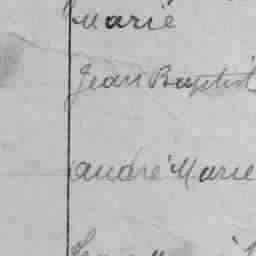 Marie
Jean Baptist
André Marie